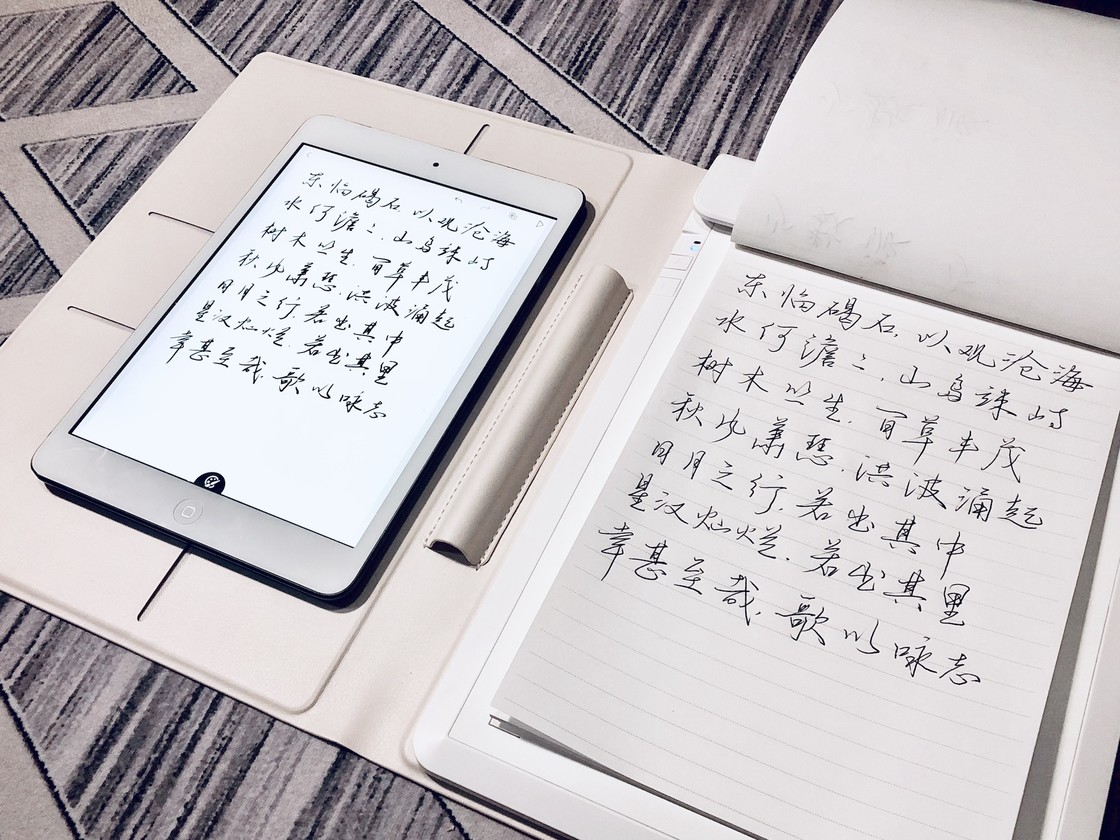 东临碣石,以观沧海
水何澹々,山岛竦峙
树木丛生,百草丰茂
秋风萧瑟,洪波涌起
日月之行,若出其中
星汉灿烂,若出其里
幸甚至哉,歌以咏志
东临碣石,以观沧海
水何澹々,山岛竦峙
树木丛生,百草丰茂
秋风萧瑟,洪波涌起
日月之行,若出其中
星汉灿烂,若出其里
幸甚至哉,歌以咏志